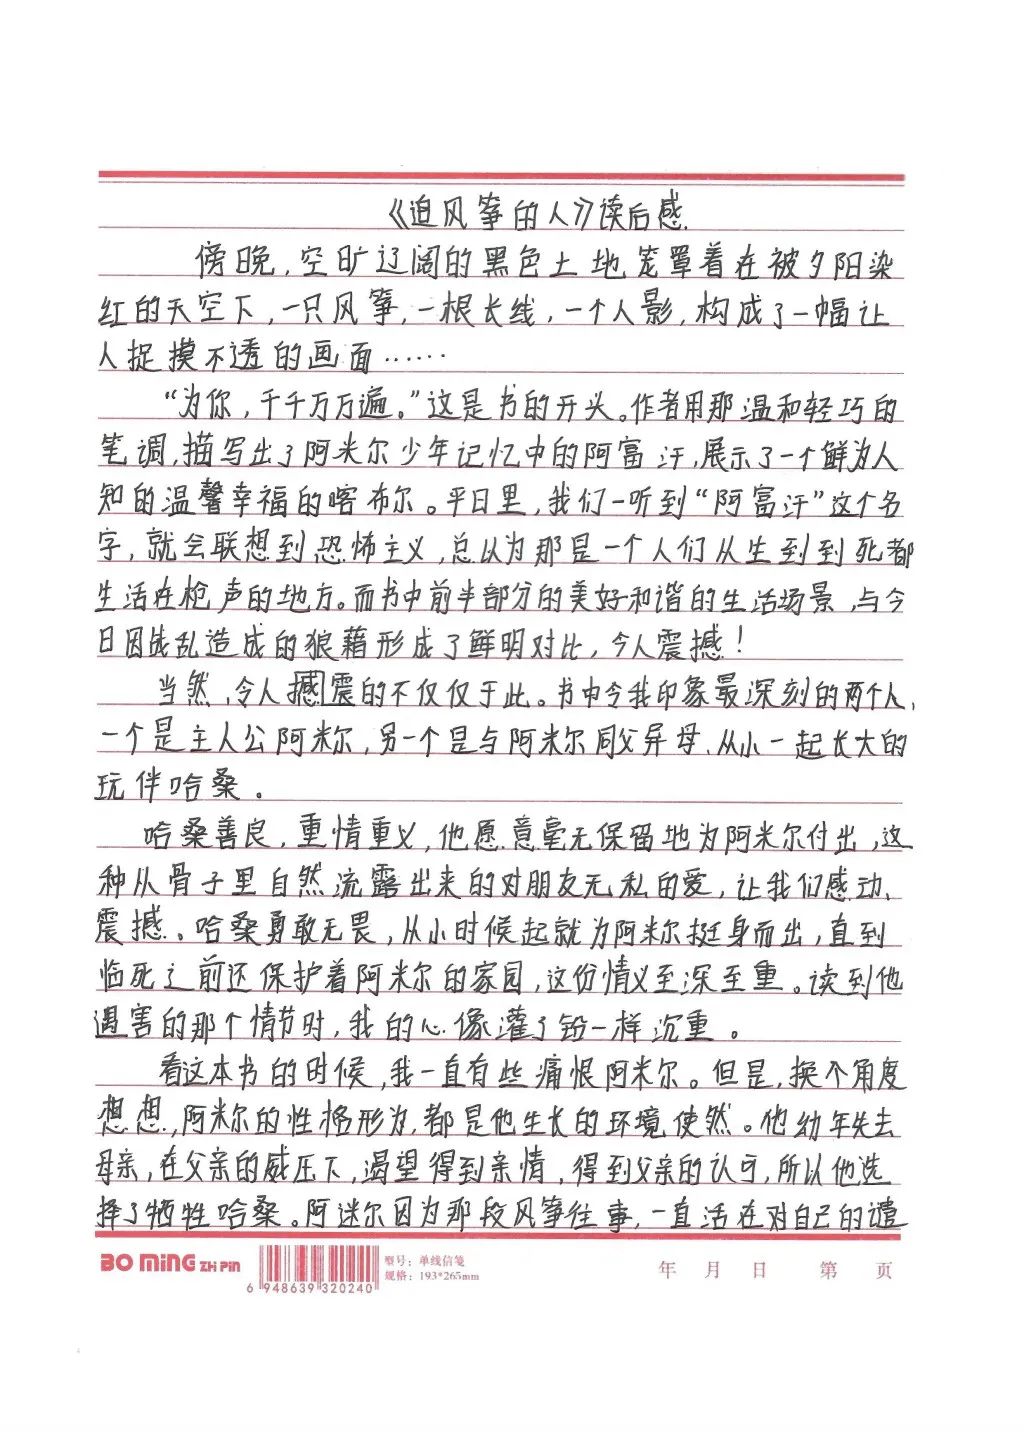 《追风筝的人》读后感
傍晚，空旷辽阔的黑色土地笼罩着在被夕阳染
红的天空下，一只风筝，一根长线，一个人影，构成了一幅让
人捉摸不透的画面……
“为你，千千万万遍。”这是书的开头。作者用那温和轻巧的
笔调，描写出了阿米尔少年记忆中的阿富汗，展示了一个鲜为人
知的温馨幸福的喀布尔。平日里，我们一听到“阿富汗”这个名
字，就会联想到恐怖主义，总以为那是一个人们从生到到死都
生活在枪声的地方。而书中前半部分的美好和谐的生活场景，与今
日因战乱造成的狼藉形成了鲜明对比，令人震撼！
当然，令人撼震的不仅仅于此。书中令我印象最深刻的两个人，
一个是主人公阿米尔，另一个是与阿米尔同父异母、从小一起长大的
玩伴哈桑。
哈桑善良，重情重义，他愿意毫无保留地为阿米尔付出，这
种从骨子里自然流露出来的对朋友无私的爱，让我们感动、
震撼。哈桑勇敢无畏，从小时候起就为阿米尔挺身而出，直到
临死之前还保护着阿米尔的家园，这份情义至深至重。读到他
遇害的那个情节时，我的心像灌了铅一样沉重。
看这本书的时候，我一直有些痛恨阿米尔。但是，换个角度
想想，阿米尔的性格形为，都是他生长的环境使然。他幼年失去
母亲，在父亲的威压下，渴望得到亲情，得到父亲的认可，所以他选
择了牺牲哈桑。阿迷尔因为那段风筝往事，一直活在对自己的谴
BO MING ZHI PIN
6 948639 320240
型号：单线信笺
规格：193*265mm
年 月 日 第 页